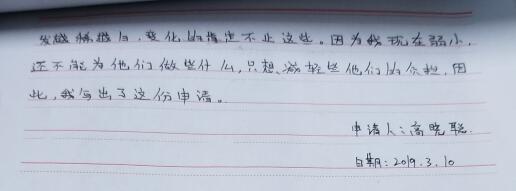 发越稀拔白，变化的肯定不止这些。因为我现在弱小，
还不能为他们做些什么，只想减轻些他们的负担，因
此，我写出了这份申请。
申请人：高晓聪.
日期：2019.3.10